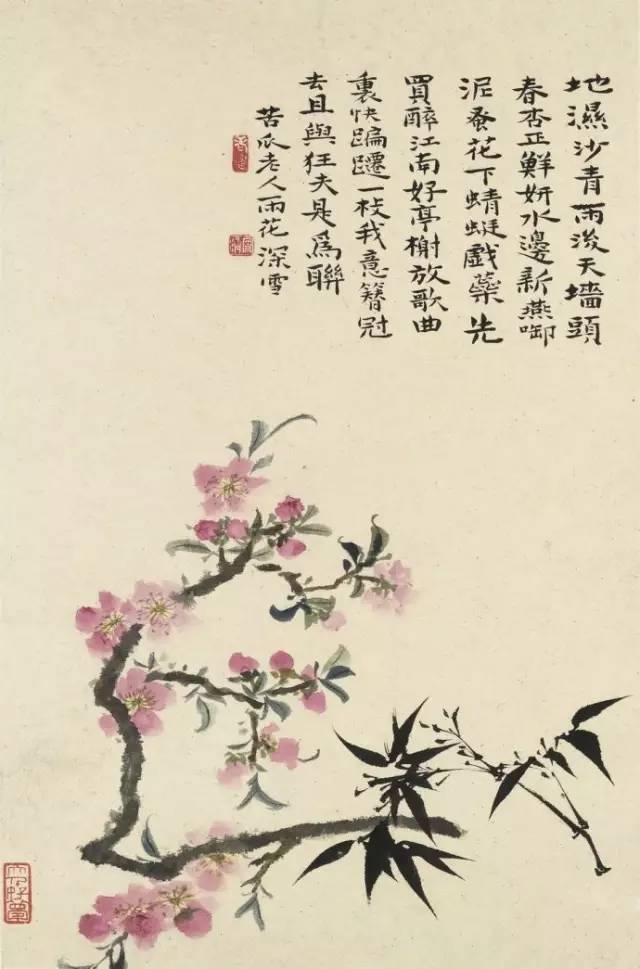 地濕沙青雨後天墻頭
春杏正鮮妍水邊新燕啣
泥蚤花下蜻蜓戲藥先
買醉江南好亭榭放歌曲
裏快蹁躚一枝我意簪冠
去且與狂夫是爲聯
苦瓜老人雨花深雪
大滌堂